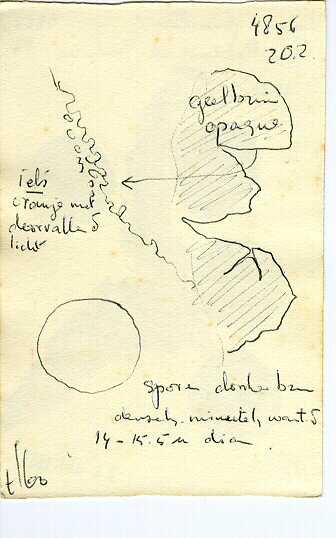 4856
202
geelbruin
opaque
iets
oranje met
doorvallend
licht
sporen donker bruin
densely, minutely warted
14 - 15.5 µ diam